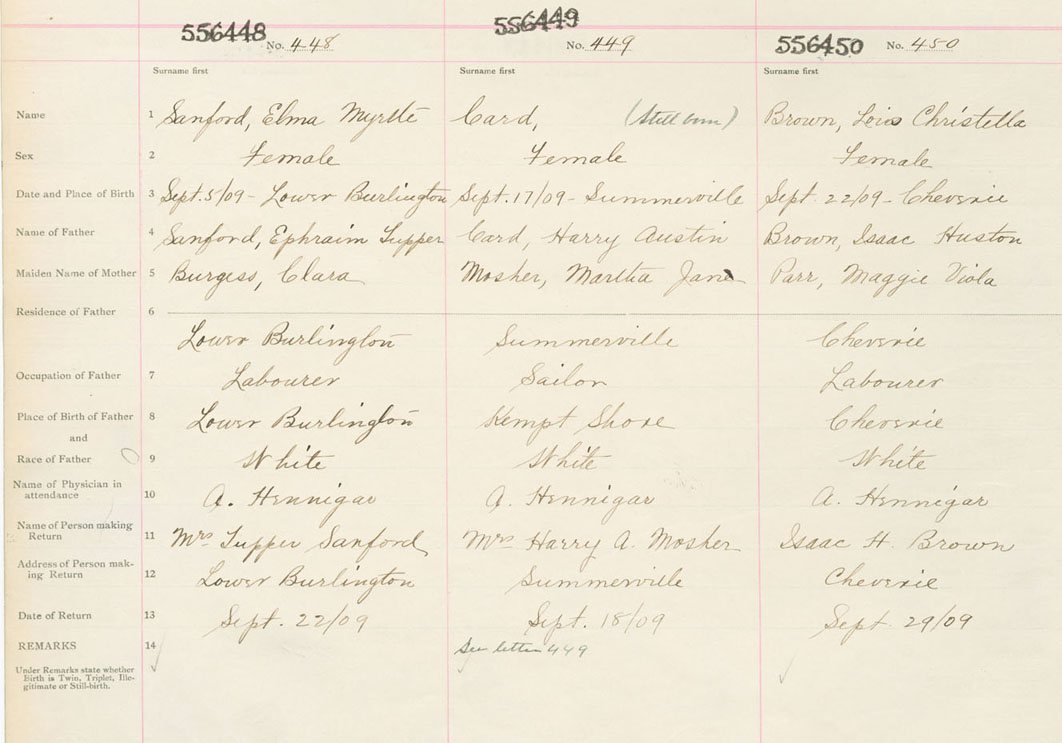 556448 No. 448 556449 No. 449 556450 No. 450
Surname first Surname first Surname first
Name 1 Sanford, Elma Myrtle Card, (Still born) Brown, Lois Christella
Sex 2 Female Female Female
Date and Place of Birth 3 Sept. 5/09 - Lower Burlington Sept. 17/09 - Summerville Sept. 22/09 - Cheverie
Name of Father 4 Sanford, Ephraim Tupper Card, Harry Austin Brown, Isaac Huston
Maiden Name of Mother 5 Burgess, Clara Mosher, Martha Jane Parr, Maggie Viola
Residence of Father 6
Lower Burlington Summerville Cheverie
Occupation of Father 7 Labourer Sailor Labourer
Place of Birth of Father 8 Lower Burlington Kempt Shore Cheverie
and
Race of Father 9 White White White
Name of Physician in
attendance 10 A. Hennigar A. Hennigar A. Hennigar
Name of Person making
Return 11 Mrs Tupper Sanford Mrs Harry A. Mosher Isaac H. Brown
Address of Person mak-
ing Return 12 Lower Burlington Summerville Cheverie
Date of Return 13 Sept. 22/09 Sept. 18/09 Sept. 29/09
REMARKS 14 See letter 449
Under Remarks state whether
Birth is Twin, Triplet, Ille-
gitimate or Still-birth.